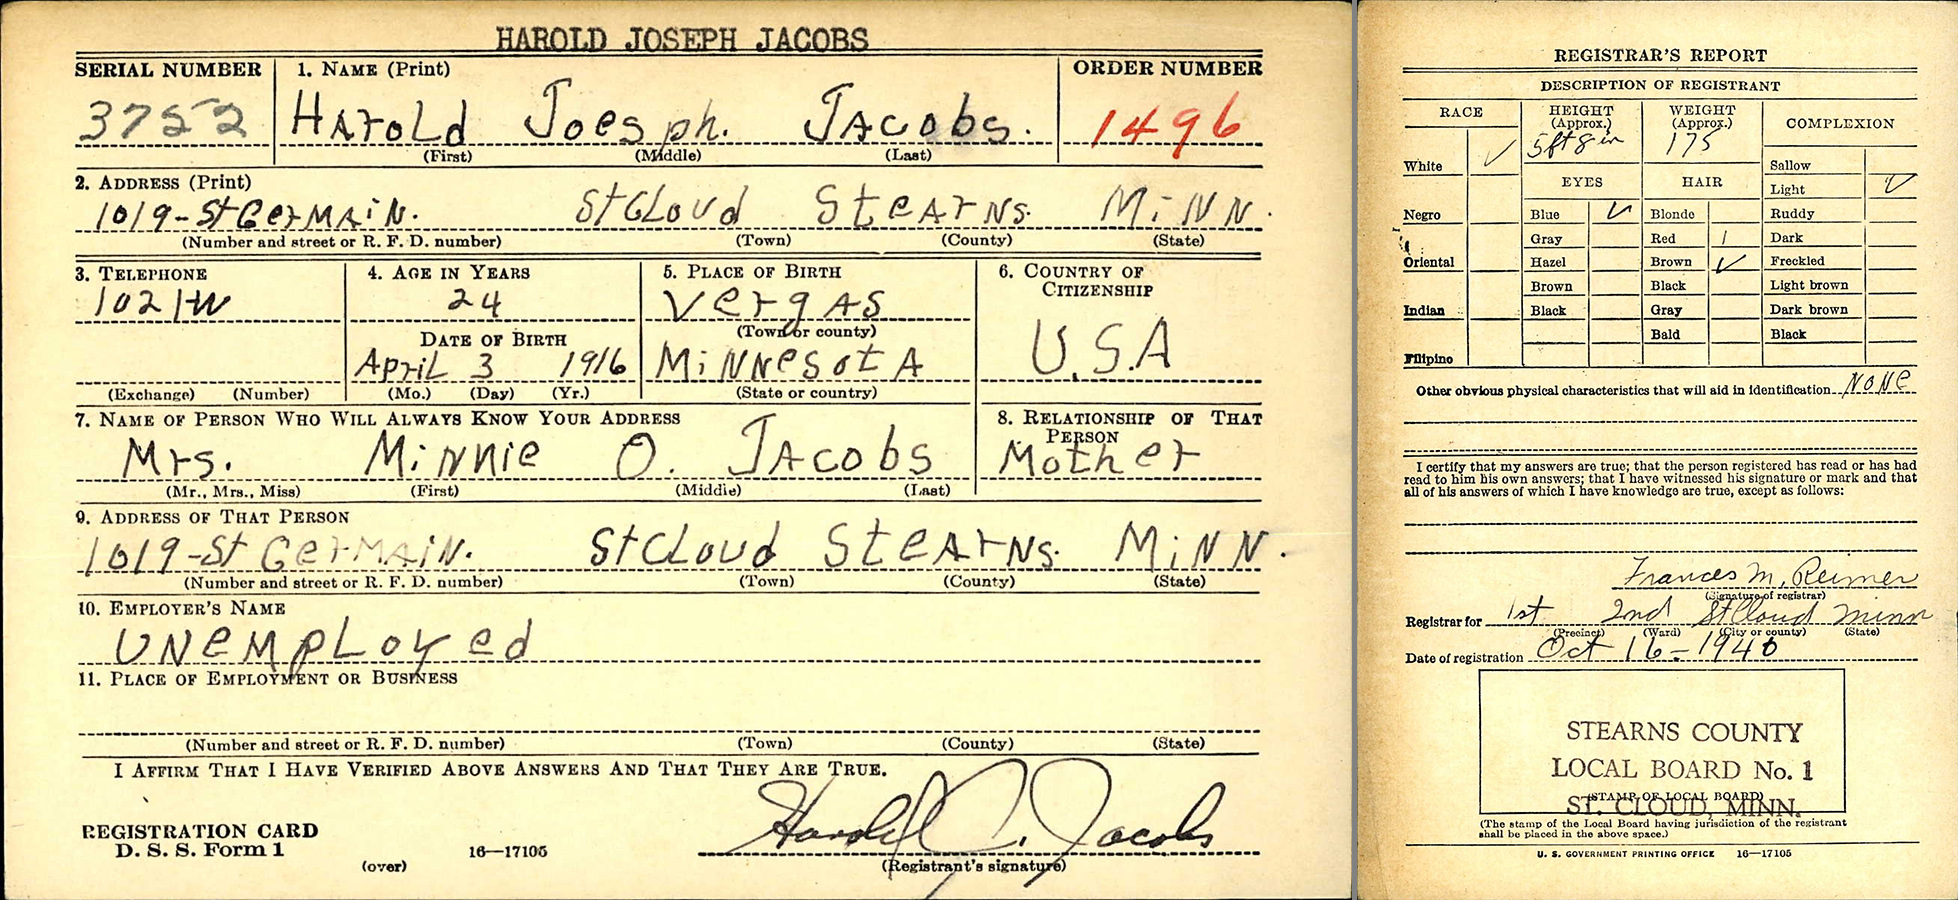 HAROLD JOSEPH JACOBS
SERIAL NUMBER 1. NAME (Print) ORDER NUMBER
3752 HAroLd Joesph. JAcobs. 1496
(First) (Middle) (Last)
2. ADDRESS (Print)
1019-St GerMAiN. StCLoud SteArNs. MiNN.
(Number and street or R. F. D. number) (Town) (County) (State)
3. TELEPHONE 4. AGE IN YEARS 5. PLACE OF BIRTH 6. COUNTRY OF CITIZENSHIP
1021W 24 VergAS
(Town or county)
DATE OF BIRTH U.S.A
ApriL 3 1916 MiNNesotA
(Exchange) (Number) (Mo.) (Day) (Yr.) (State or country)
7. NAME OF PERSON WHO WILL ALWAYS KNOW YOUR ADDRESS 8. RELATIONSHIP OF THAT PERSON
Mrs. MiNNie O. JAcobs Mother
(Mr., Mrs., Miss) (First) (Middle) (Last)
9. ADDRESS OF THAT PERSON
1019-St GerMAiN. StCLoud SteArNs. MiNN.
(Number and street or R. F. D. number) (Town) (County) (State)
10. EMPLOYER'S NAME
UNeMpLoyed
11. PLACE OF EMPLOYMENT OR BUSINESS
(Number and street or R. F. D. number) (Town) (County) (State)
I AFFIRM THAT I HAVE VERIFIED ABOVE ANSWERS AND THAT THEY ARE TRUE.
Harold J. Jacobs
REGISTRATION CARD
D. S. S. Form 1 16—17105
(over) (Registrant's signature)
REGISTRAR'S REPORT
DESCRIPTION OF REGISTRANT
RACE HEIGHT (Approx.) WEIGHT (Approx.) COMPLEXION
5 ft 8 in 175
White ✓ Sallow
EYES HAIR Light ✓
Negro Blue ✓ Blonde Ruddy
Gray Red Dark
Oriental Hazel Brown ✓ Freckled
Brown Black Light brown
Indian Black Gray Dark brown
Bald Black
Filipino
Other obvious physical characteristics that will aid in identification NoNe
I certify that my answers are true; that the person registered has read or has had
read to him his own answers; that I have witnessed his signature or mark and that
all of his answers of which I have knowledge are true, except as follows:
Frances M. Reimer
(Signature of registrar)
Registrar for 1st 2nd St Cloud Minn
(Precinct) (Ward) (City or county) (State)
Date of registration Oct 16-1940
STEARNS COUNTY
LOCAL BOARD No. 1
(STAMP OF LOCAL BOARD)
ST. CLOUD, MINN.
(The stamp of the Local Board having jurisdiction of the registrant
shall be placed in the above space.)
U. S. GOVERNMENT PRINTING OFFICE 16—17105